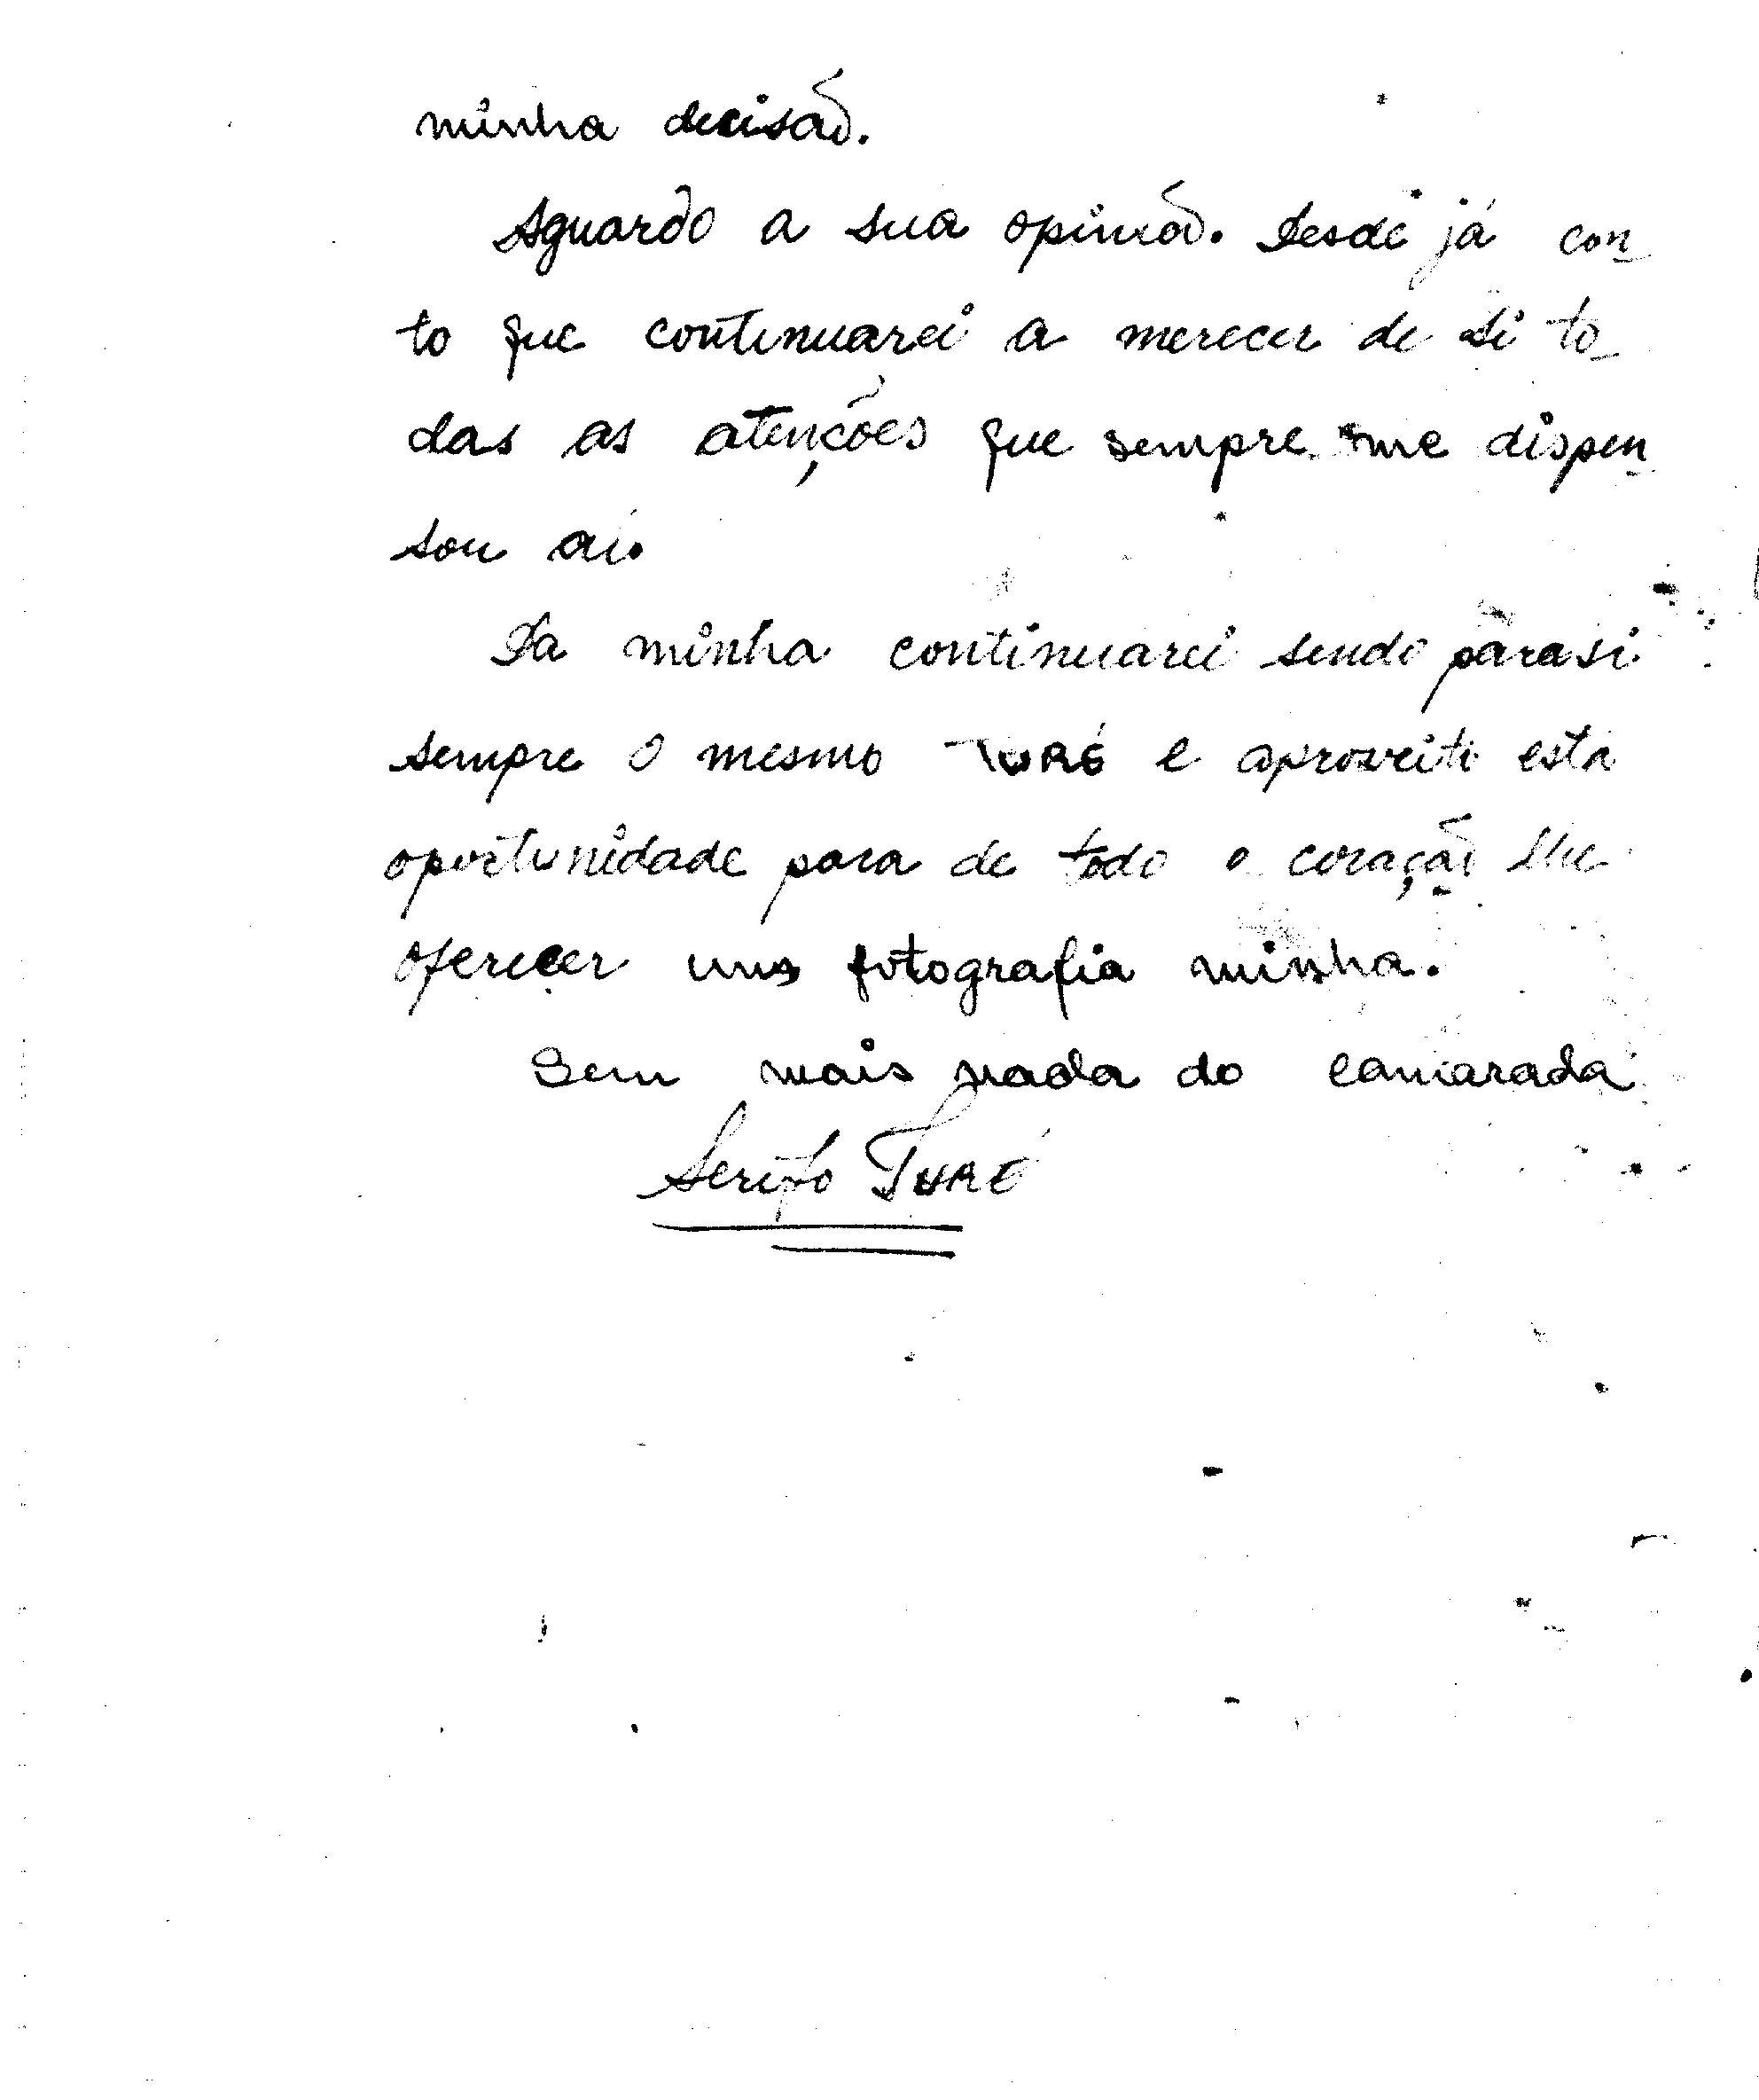 minha decisão.
Aguardo a sua opinião. Desde já con-
to que continuarei a merecer de si to-
das as atenções que sempre me dispen-
sou aí.
Da minha continuarei sendo para si
sempre o mesmo TURÉ e aproveito esta
oportunidade para de todo o coração lhe
oferecer uma fotografia minha.
Sem mais nada do camarada
Serifo TURÉ